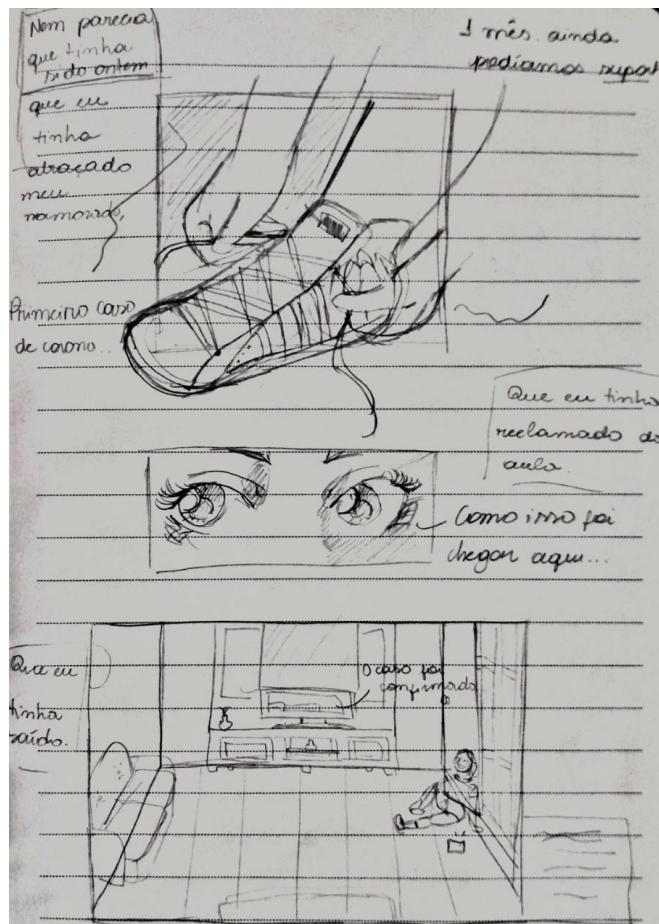 Nem parecia
que tinha
sido ontem
que eu
tinha
abraçado
meu
namorado,
1 mês ainda
podíamos suport
Primeiro caso
de corona...
Que eu tinha
reclamado da
aula.
Como isso foi
chegar aqui...
Que eu
tinha
saído.
O caso foi
confirmado